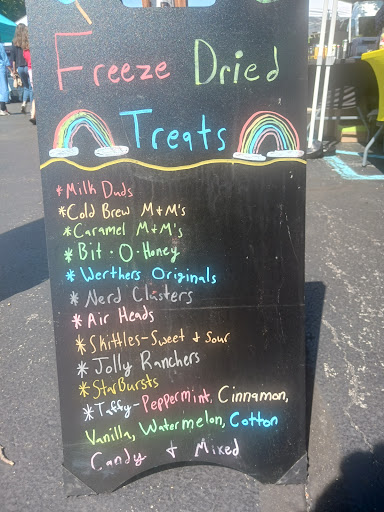 Freeze Dried
Treats
*Milk Duds
*Cold Brew M+M's
*Caramel M+M's
*Bit-O-Honey
*Werthers Originals
*Nerd Clusters
*Air Heads
*Skittles-Sweet + Sour
*Jolly Ranchers
*StarBursts
*Taffy-Peppermint, Cinnamon,
Vanilla, Watermelon, Cotton
Candy + Mixed